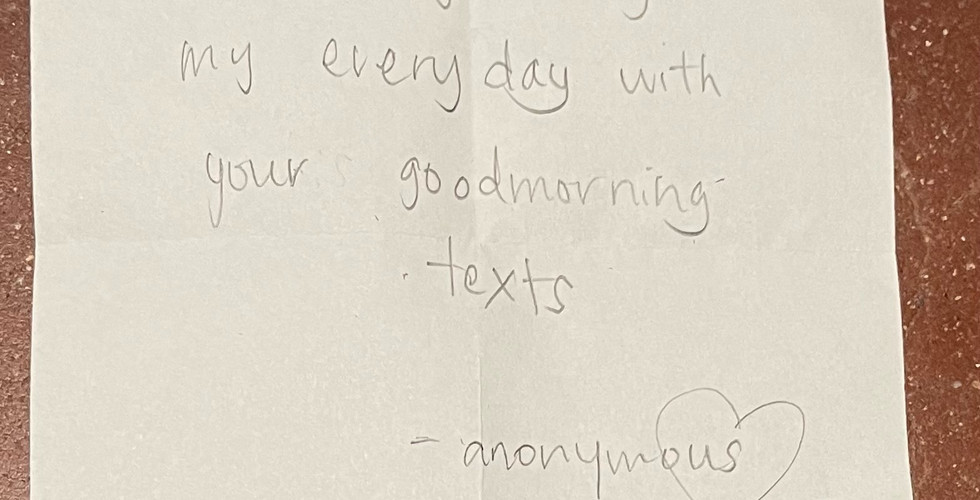 my everyday with
your goodmorning
texts
- anonymous